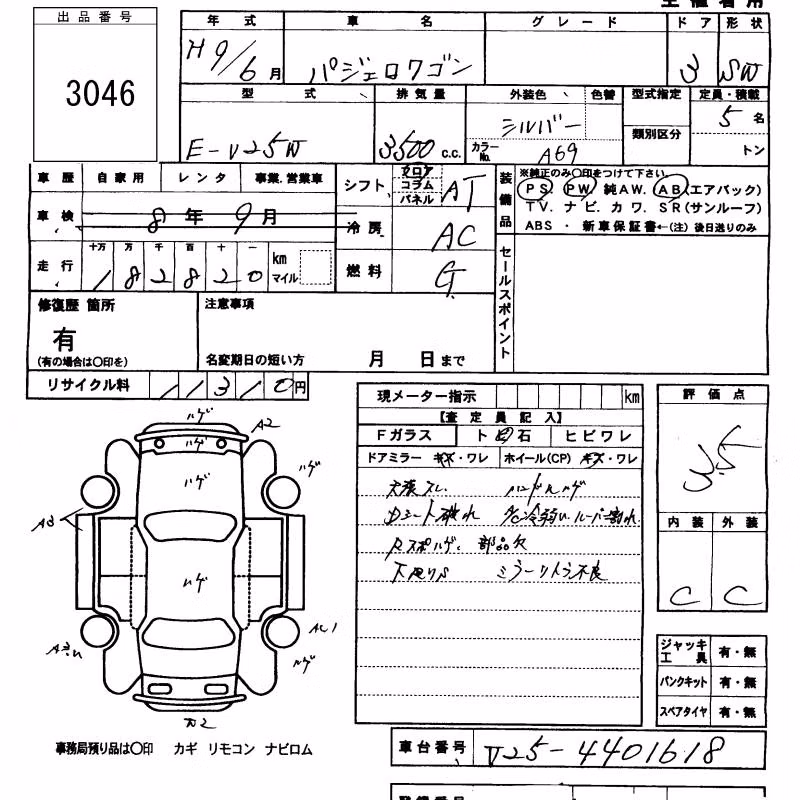 出品番号
3046
年式 車名 グレード ドア 形状
H9/6月 パジェロワゴン 3 SW
型式 排気量 外装色 色替 型式指定 定員・積載
E-V25W 3500 c.c. シルバー 類別区分 5名
カラーNo. A69 トン
車歴 自家用 レンタ 事業.営業車
シフト フロア コラム パネル AT
装備品 ※純正のみ〇印をつけて下さい。
PS PW 純AW. AB(エアバック)
TV. ナビ. カワ. SR(サンルーフ)
ABS ・ 新車保証書←(注) 後日送りのみ
車検 8年9月
冷房 AC
走行 十万 万 千 百 十 一 km マイル
182820
燃料 G
セールスポイント
修復歴 箇所 注意事項
有
(有の場合は〇印を) 名変期日の短い方 月 日まで
リサイクル料 11310円
現メーター指示 km
【査定員記入】
Fガラス ト凹石 ヒビワレ
ドアミラー キズ・ワレ ホイール(CP) キズ・ワレ
ハンドルハゲ
Dシート破れ A/C冷弱い ルーバー割れ
Rスポハゲ、部品欠
下廻りS ミラーリトラ不良
評価点
3.5
内装 外装
C C
ハゲ A2
ハゲ
ハゲ
ハゲ
A3
ハゲ
AC1
ハゲ
ジャッキ工具 有・無
パンクキット 有・無
スペアタイヤ 有・無
事務局預り品は〇印 カギ リモコン ナビロム
車台番号 V25-4401618